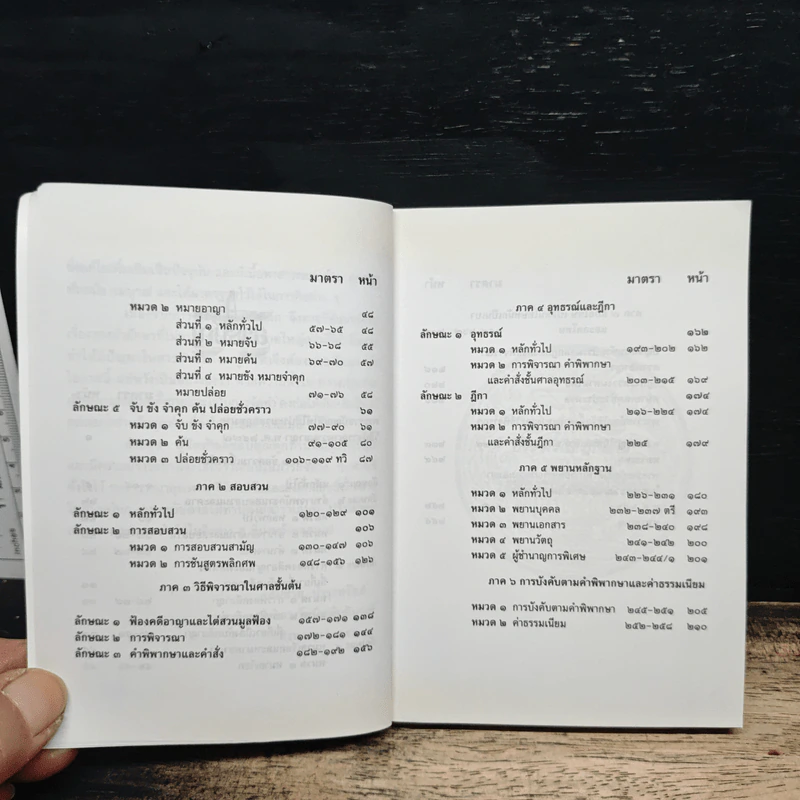 มาตรา หน้า
หมวด ๒ หมายอาญา ๔๘
ส่วนที่ ๑ หลักทั่วไป ๕๗-๖๕ ๔๘
ส่วนที่ ๒ หมายจับ ๖๖-๖๘ ๕๕
ส่วนที่ ๓ หมายค้น ๖๙-๗๐ ๕๗
ส่วนที่ ๔ หมายขัง หมายจำคุก
หมายปล่อย ๗๑-๗๖ ๕๘
ลักษณะ ๕ จับ ขัง จำคุก ค้น ปล่อยชั่วคราว ๖๑
หมวด ๑ จับ ขัง จำคุก ๗๗-๙๐ ๖๑
หมวด ๒ ค้น ๙๑-๑๐๕ ๘๐
หมวด ๓ ปล่อยชั่วคราว ๑๐๖-๑๑๙ ทวิ ๘๗
ภาค ๒ สอบสวน
ลักษณะ ๑ หลักทั่วไป ๑๒๐-๑๒๙ ๑๐๑
ลักษณะ ๒ การสอบสวน ๑๐๖
หมวด ๑ การสอบสวนสามัญ ๑๓๐-๑๔๗ ๑๐๖
หมวด ๒ การชันสูตรพลิกศพ ๑๔๘-๑๕๖ ๑๒๖
ภาค ๓ วิธีพิจารณาในศาลชั้นต้น
ลักษณะ ๑ ฟ้องคดีอาญาและไต่สวนมูลฟ้อง ๑๕๗-๑๗๑ ๑๓๘
ลักษณะ ๒ การพิจารณา ๑๗๒-๑๘๑ ๑๔๔
ลักษณะ ๓ คำพิพากษาและคำสั่ง ๑๘๒-๑๙๒ ๑๕๖
มาตรา หน้า
ภาค ๔ อุทธรณ์และฎีกา
ลักษณะ ๑ อุทธรณ์ ๑๖๒
หมวด ๑ หลักทั่วไป ๑๙๓-๒๐๒ ๑๖๒
หมวด ๒ การพิจารณา คำพิพากษา
และคำสั่งชั้นศาลอุทธรณ์ ๒๐๓-๒๑๕ ๑๖๙
ลักษณะ ๒ ฎีกา ๑๗๔
หมวด ๑ หลักทั่วไป ๒๑๖-๒๒๔ ๑๗๔
หมวด ๒ การพิจารณา คำพิพากษา
และคำสั่งชั้นฎีกา ๒๒๕ ๑๗๙
ภาค ๕ พยานหลักฐาน
หมวด ๑ หลักทั่วไป ๒๒๖-๒๓๑ ๑๘๐
หมวด ๒ พยานบุคคล ๒๓๒-๒๓๗ ตรี ๑๙๓
หมวด ๓ พยานเอกสาร ๒๓๘-๒๔๐ ๑๙๘
หมวด ๔ พยานวัตถุ ๒๔๑-๒๔๒ ๒๐๐
หมวด ๕ ผู้ชำนาญการพิเศษ ๒๔๓-๒๔๔/๑ ๒๐๑
ภาค ๖ การบังคับตามคำพิพากษาและค่าธรรมเนียม
หมวด ๑ การบังคับตามคำพิพากษา ๒๔๕-๒๕๑ ๒๐๕
หมวด ๒ ค่าธรรมเนียม ๒๕๒-๒๕๘ ๒๑๐